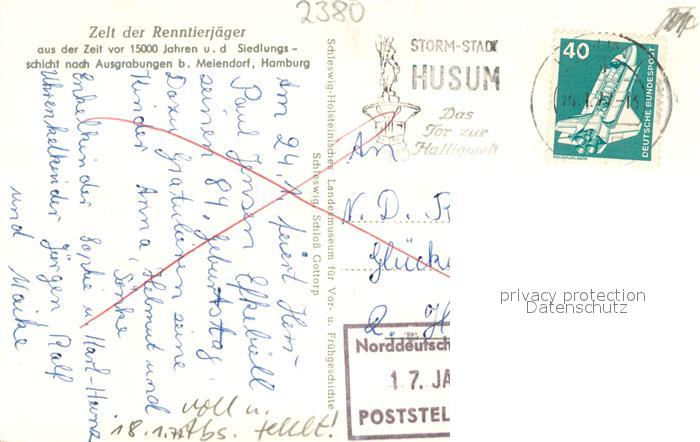 2380
Zelt der Renntierjäger
aus der Zeit vor 15000 Jahren u. d Siedlungs-
schicht nach Ausgrabungen b. Meiendorf, Hamburg
Am 24.1. feiert Herr
Paul Jensen Efkebüll
seinen 84. Geburtstag.
Dazu gratulieren seine
Kinder Anna, Helmut und
Sönke
Enkelkinder Sophie u. Karl-Heinz
Urenkelkinder Jürgen Ralf
und Maike
voll u.
18.1.77 Abs. fehlt!
Schleswig-Holsteinisches Landesmuseum für Vor- u. Frühgeschichte
Schleswig, Schloß Gottorp
STORM-STADT
HUSUM
Das
Tor zur
Halligwelt
40
DEUTSCHE BUNDESPOST
WELTRAUMLABOR
An
N. D. R
Glücke
2. H
Norddeutsch
17. JA
POSTSTEL
privacy protection
Datenschutz